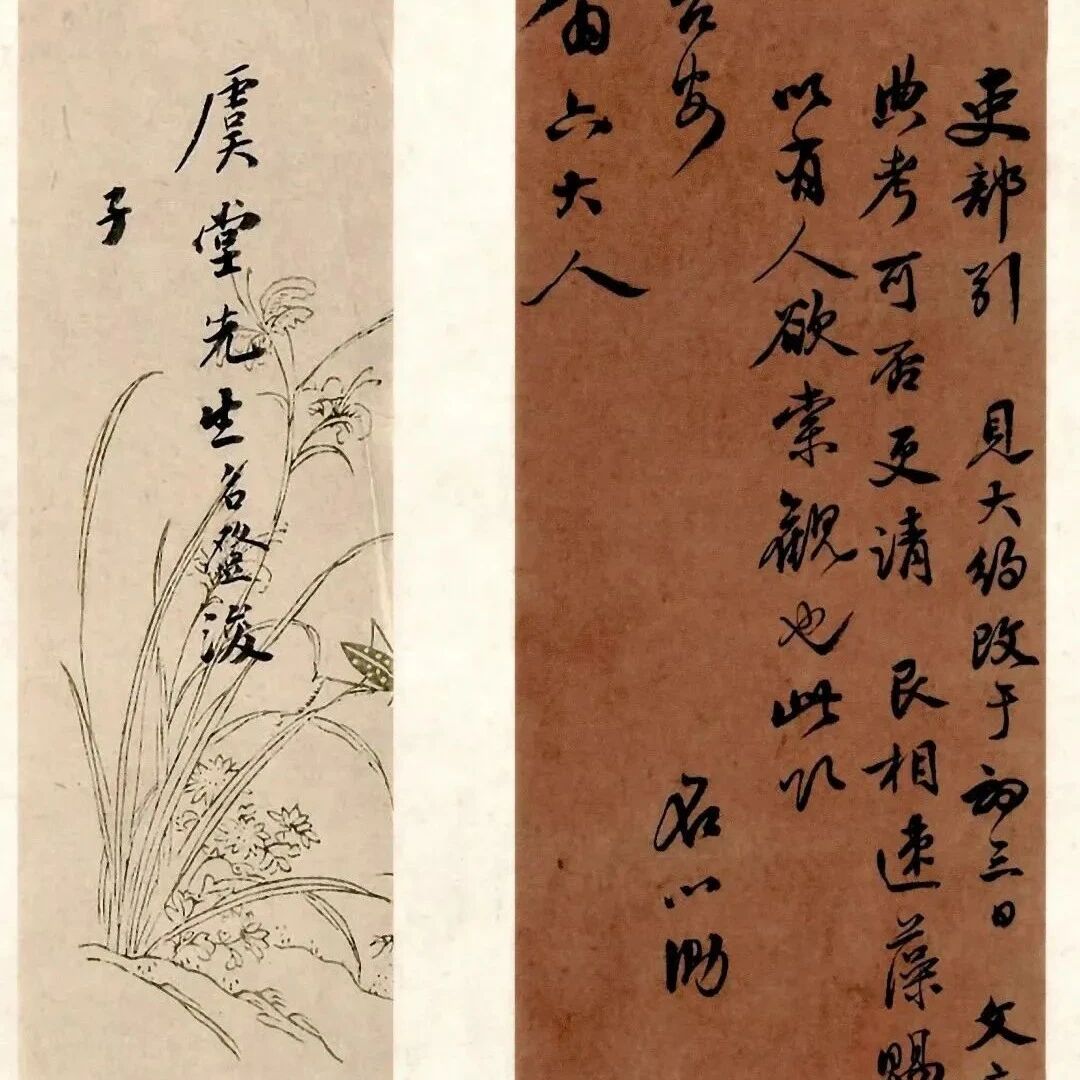 吏部引 見大約改于初三日 文
典考可否更請 艮相速藻賜
以有人欲索觀也此叩
台安 名心泐
六大人
虞堂先生名浚
子